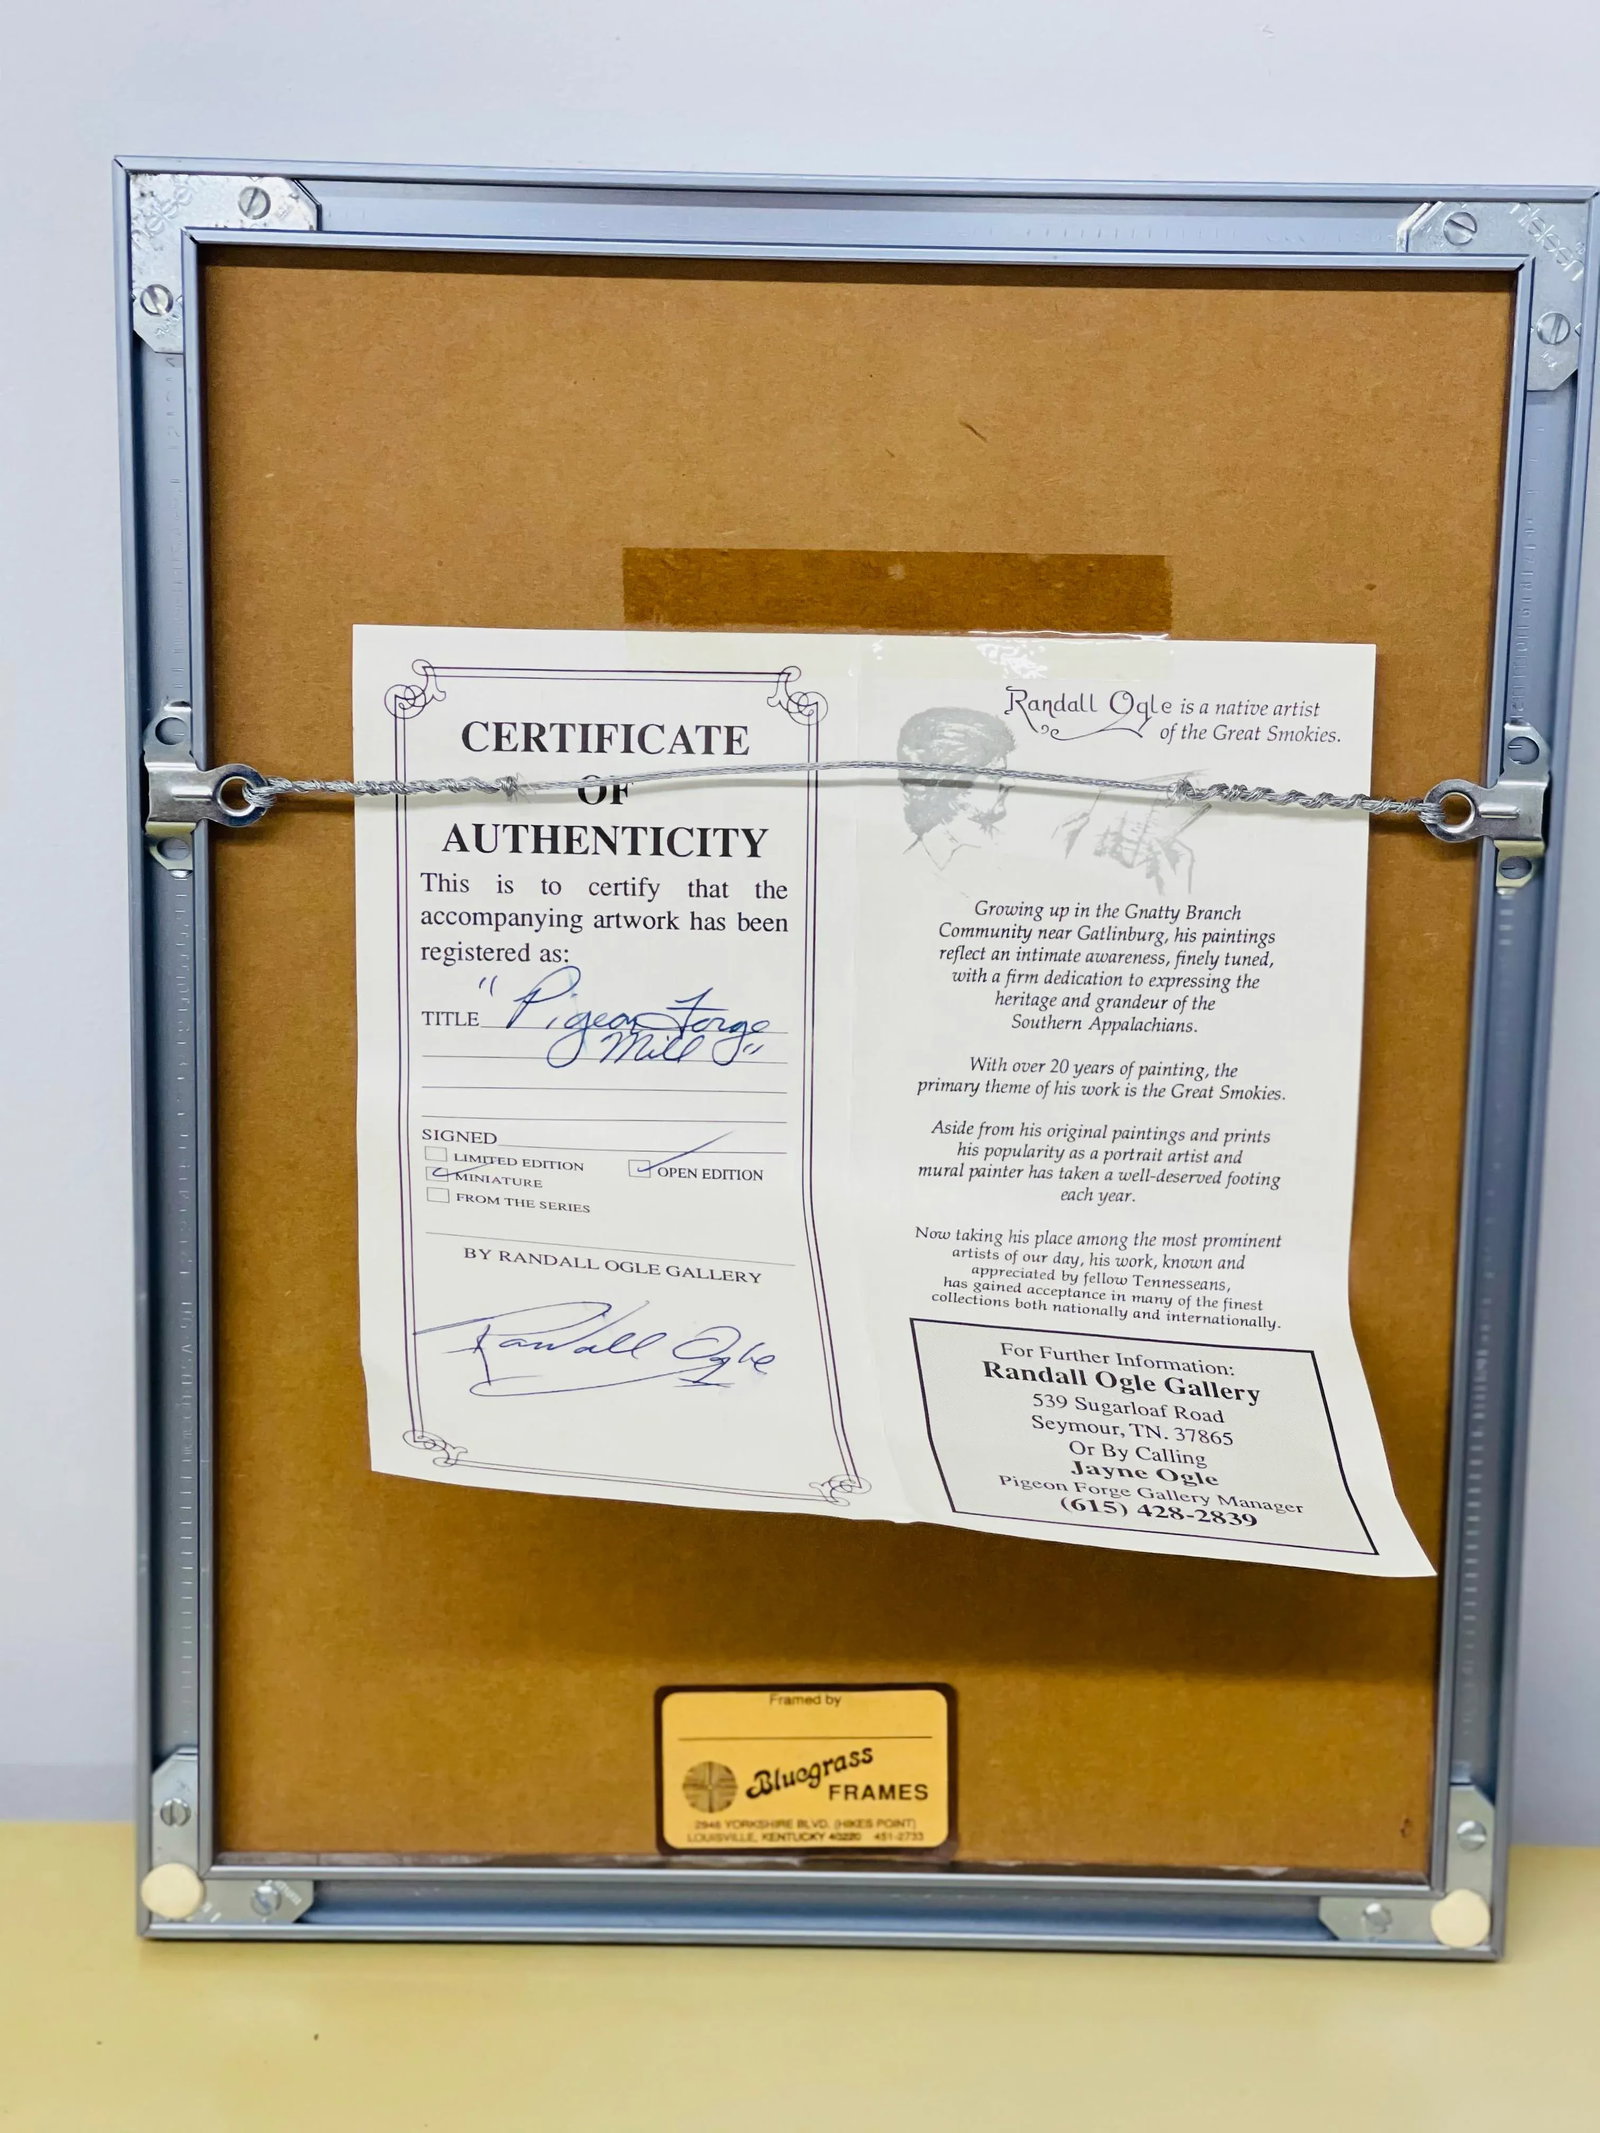 CERTIFICATE
OF
AUTHENTICITY
This is to certify that the
accompanying artwork has been
registered as:
TITLE "Pigeon Forge
Mill"
SIGNED
LIMITED EDITION
OPEN EDITION
MINIATURE
FROM THE SERIES
BY RANDALL OGLE GALLERY
Randall Ogle
Randall Ogle is a native artist
of the Great Smokies.
Growing up in the Gnatty Branch
Community near Gatlinburg, his paintings
reflect an intimate awareness, finely tuned,
with a firm dedication to expressing the
heritage and grandeur of the
Southern Appalachians.
With over 20 years of painting, the
primary theme of his work is the Great Smokies.
Aside from his original paintings and prints
his popularity as a portrait artist and
mural painter has taken a well-deserved footing
each year.
Now taking his place among the most prominent
artists of our day, his work, known and
appreciated by fellow Tennesseans,
has gained acceptance in many of the finest
collections both nationally and internationally.
For Further Information:
Randall Ogle Gallery
539 Sugarloaf Road
Seymour, TN. 37865
Or By Calling
Jayne Ogle
Pigeon Forge Gallery Manager
(615) 428-2839
Framed by
Bluegrass
FRAMES
2946 YORKSHIRE BLVD. (HIKES POINT)
LOUISVILLE, KENTUCKY 40220 451-2733
nielsen
nielsen